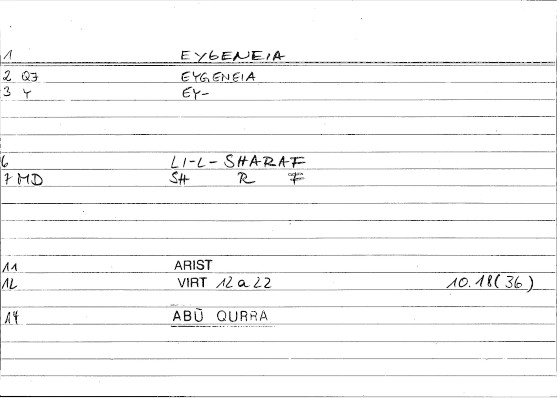 1 EYGENEIA
2 Q3 EYGENEIA
3 Y EY-
6 LI-L-SHARAF
7 MD SH R F
11 ARIST
12 VIRT 12 a 22 10.18(36)
14 ABŪ QURRA